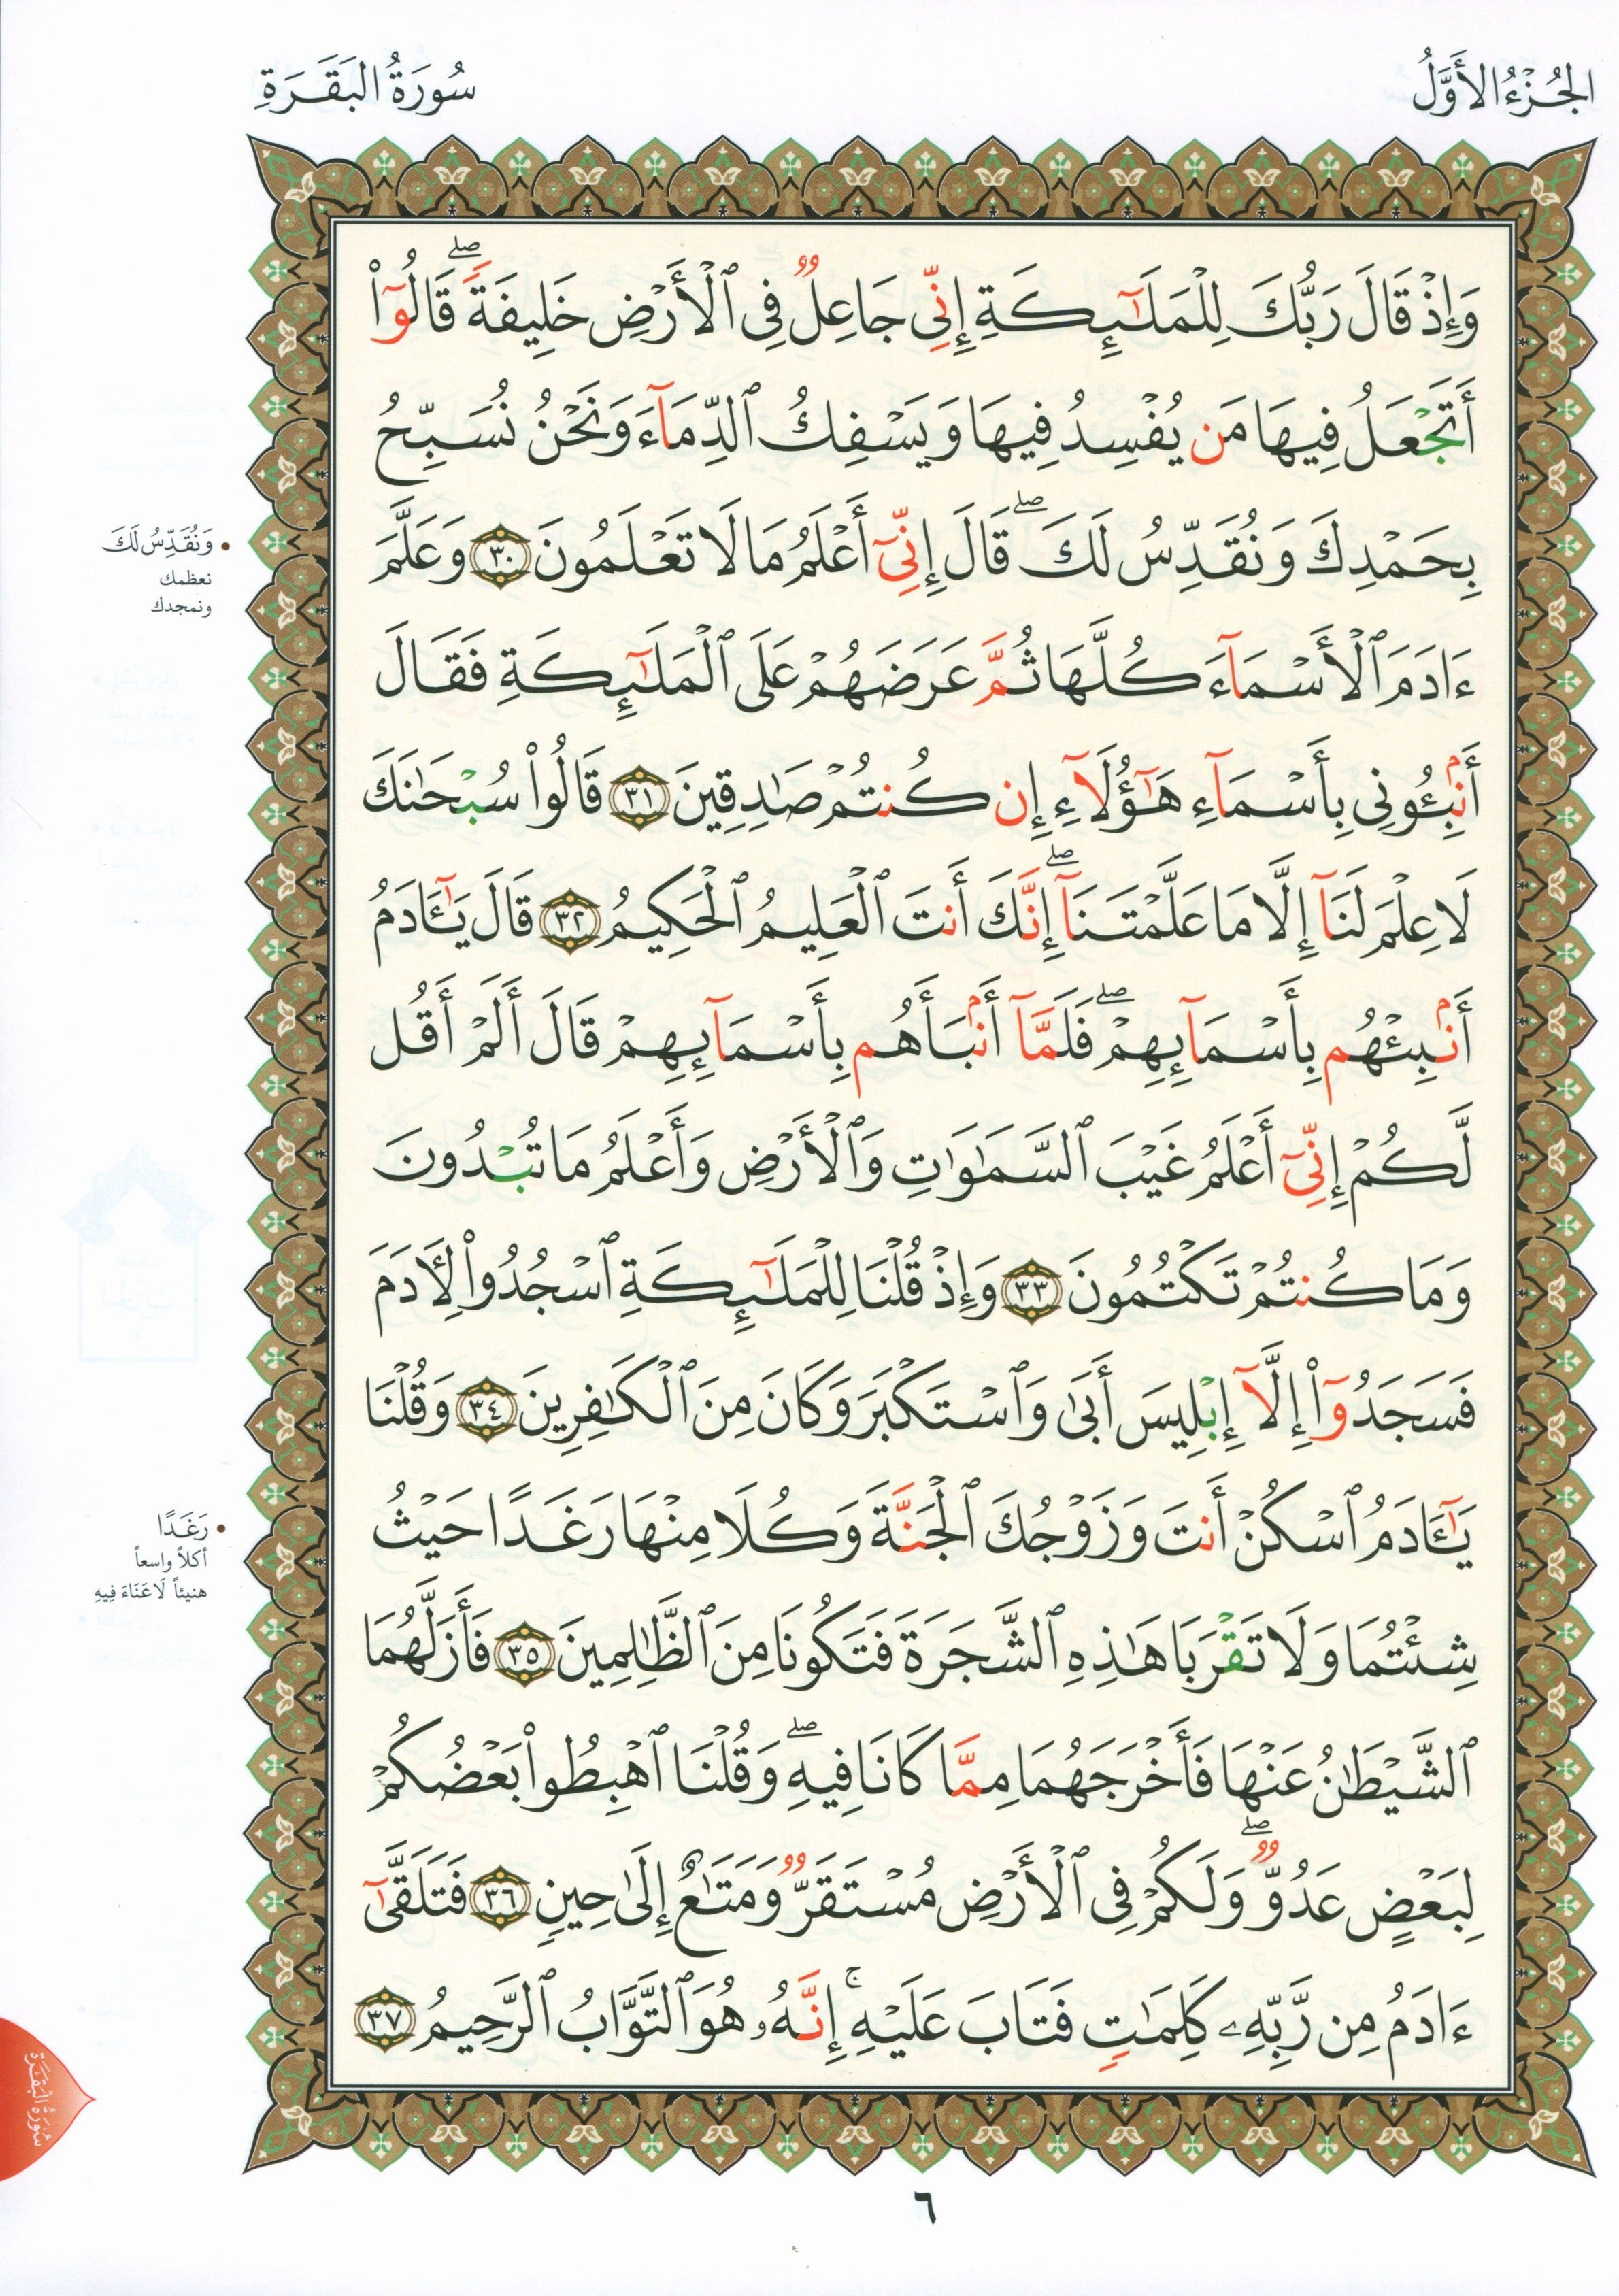 الجُزْءُ الأَوَّلُ
سُورَةُ البَقَرَةِ
وَإِذْ قَالَ رَبُّكَ لِلْمَلَٰٓئِكَةِ إِنِّي جَاعِلٌ فِي ٱلْأَرْضِ خَلِيفَةً ۖ قَالُوٓا۟
أَتَجْعَلُ فِيهَا مَن يُفْسِدُ فِيهَا وَيَسْفِكُ ٱلدِّمَآءَ وَنَحْنُ نُسَبِّحُ
بِحَمْدِكَ وَنُقَدِّسُ لَكَ ۖ قَالَ إِنِّيٓ أَعْلَمُ مَا لَا تَعْلَمُونَ ٣٠ وَعَلَّمَ
ءَادَمَ ٱلْأَسْمَآءَ كُلَّهَا ثُمَّ عَرَضَهُمْ عَلَى ٱلْمَلَٰٓئِكَةِ فَقَالَ
أَنۢبِـُٔونِي بِأَسْمَآءِ هَٰٓؤُلَآءِ إِن كُنتُمْ صَٰدِقِينَ ٣١ قَالُوا۟ سُبْحَٰنَكَ
لَا عِلْمَ لَنَآ إِلَّا مَا عَلَّمْتَنَآ ۖ إِنَّكَ أَنتَ ٱلْعَلِيمُ ٱلْحَكِيمُ ٣٢ قَالَ يَٰٓـَٔادَمُ
أَنۢبِئْهُم بِأَسْمَآئِهِمْ ۖ فَلَمَّآ أَنۢبَأَهُم بِأَسْمَآئِهِمْ قَالَ أَلَمْ أَقُل
لَّكُمْ إِنِّيٓ أَعْلَمُ غَيْبَ ٱلسَّمَٰوَٰتِ وَٱلْأَرْضِ وَأَعْلَمُ مَا تُبْدُونَ
وَمَا كُنتُمْ تَكْتُمُونَ ٣٣ وَإِذْ قُلْنَا لِلْمَلَٰٓئِكَةِ ٱسْجُدُوا۟ لِـَٔادَمَ
فَسَجَدُوٓا۟ إِلَّآ إِبْلِيسَ أَبَىٰ وَٱسْتَكْبَرَ وَكَانَ مِنَ ٱلْكَٰفِرِينَ ٣٤ وَقُلْنَا
يَٰٓـَٔادَمُ ٱسْكُنْ أَنتَ وَزَوْجُكَ ٱلْجَنَّةَ وَكُلَا مِنْهَا رَغَدًا حَيْثُ
شِئْتُمَا وَلَا تَقْرَبَا هَٰذِهِ ٱلشَّجَرَةَ فَتَكُونَا مِنَ ٱلظَّٰلِمِينَ ٣٥ فَأَزَلَّهُمَا
ٱلشَّيْطَٰنُ عَنْهَا فَأَخْرَجَهُمَا مِمَّا كَانَا فِيهِ ۖ وَقُلْنَا ٱهْبِطُوا۟ بَعْضُكُمْ
لِبَعْضٍ عَدُوٌّ ۖ وَلَكُمْ فِي ٱلْأَرْضِ مُسْتَقَرٌّ وَمَتَٰعٌ إِلَىٰ حِينٍ ٣٦ فَتَلَقَّىٰٓ
ءَادَمُ مِن رَّبِّهِۦ كَلِمَٰتٍ فَتَابَ عَلَيْهِ ۚ إِنَّهُۥ هُوَ ٱلتَّوَّابُ ٱلرَّحِيمُ ٣٧
وَنُقَدِّسُ لَكَ
نعظمك
ونمجدك
رَغَدًا
أكلاً واسعاً
هنيئاً لَا عَنَاءَ فِيهِ
سُورَةُ البَقَرَة
٦